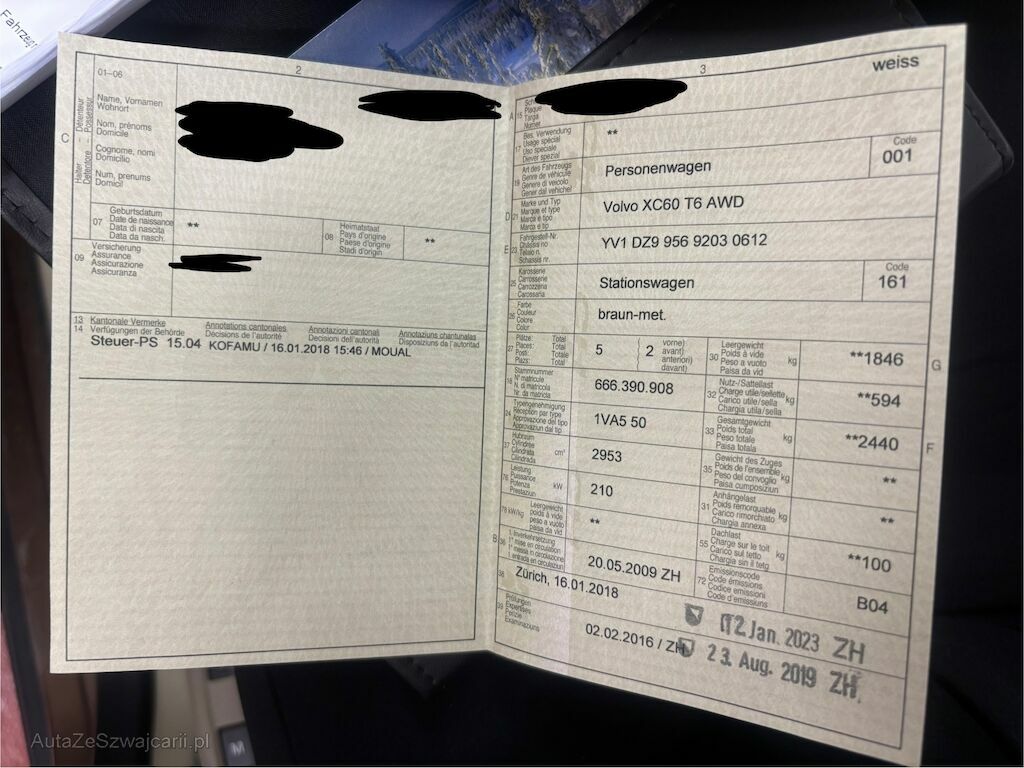 Fahrzeug
2
01–06
Name, Vornamen
Wohnort
Nom, prénoms
Domicile
Cognome, nomi
Domicilio
Num, prenums
Domicil
C
Halter Détenteur
Detentore Possessur
07
Geburtsdatum
Date de naissance
Data di nascita
Data da nasch.
**
08
Heimatstaat
Pays d'origine
Paese d'origine
Stadi d'origin
**
09
Versicherung
Assurance
Assicurazione
Assicuranza
13 Kantonale Vermerke Annotations cantonales Annotazioni cantonali Annotaziuns chantunalas
14 Verfügungen der Behörde Décisions de l'autorité Decisioni dell'autorità Disposiziuns da l'autoritad
Steuer-PS 15.04 KOFAMU / 16.01.2018 15:46 / MOUAL
3
weiss
A 15
Plaque
Targa
Numer
17
Bes. Verwendung
Usage spécial
Uso speciale
Diever spezial
**
19
Art des Fahrzeugs
Genre de véhicule
Genere di veicolo
Gener dal vehichel
Personenwagen
Code
001
D 21
Marke und Typ
Marque et type
Marca e tipo
Marca e tip
Volvo XC60 T6 AWD
E 23
Fahrgestell-Nr.
Châssis no
Telaio n.
Schassis nr.
YV1 DZ9 956 9203 0612
25
Karosserie
Carrosserie
Carrozzeria
Carossaria
Stationswagen
Code
161
26
Farbe
Couleur
Colore
Color
braun-met.
27
Plätze: Total
Places: Total
Posti: Totale
Plazs: Total
5
2
vorne)
avant)
anteriori)
davant)
30
Leergewicht
Poids à vide
Peso a vuoto
Paisa da vid
kg
**1846
G
18
Stammnummer
N° matricule
N. di matricola
Nr. da matricla
666.390.908
32
Nutz-/Sattellast
Charge utile/sellette
Carico utile/sella
Chargia utila/sella
kg
**594
24
Typengenehmigung
Réception par type
Approvazione del tipo
Approvaziun dal tip
1VA5 50
33
Gesamtgewicht
Poids total
Peso totale
Paisa totala
kg
**2440
F
37
Hubraum
Cylindrée
Cilindrata
Cilindrada
cm³
2953
35
Gewicht des Zuges
Poids de l'ensemble
Peso del convoglio
Paisa cumposiziun
kg
**
76
Leistung
Puissance
Potenza
Prestaziun
kW
210
31
Anhängelast
Poids remorquable
Carico rimorchiato
Chargia annexa
kg
**
78 kW/kg
Leergewicht
poids à vide
peso a vuoto
paisa da vid
**
55
Dachlast
Charge sur le toit
Carico sul tetto
Chargia sin il tetg
kg
**100
B 36
1. Inverkehrsetzung
1re mise en circulation
1a messa in circolazione
1. entrada en circulaziun
20.05.2009 ZH
72
Emissionscode
Code émissions
Codice emissioni
Code d'emissiuns
B04
38
Zürich, 16.01.2018
39
Prüfungen
Expertises
Perizie
Examinaziuns
02.02.2016 / ZH
12 Jan. 2023 ZH
23. Aug. 2019 ZH
M
AutaZeSzwajcarii.pl